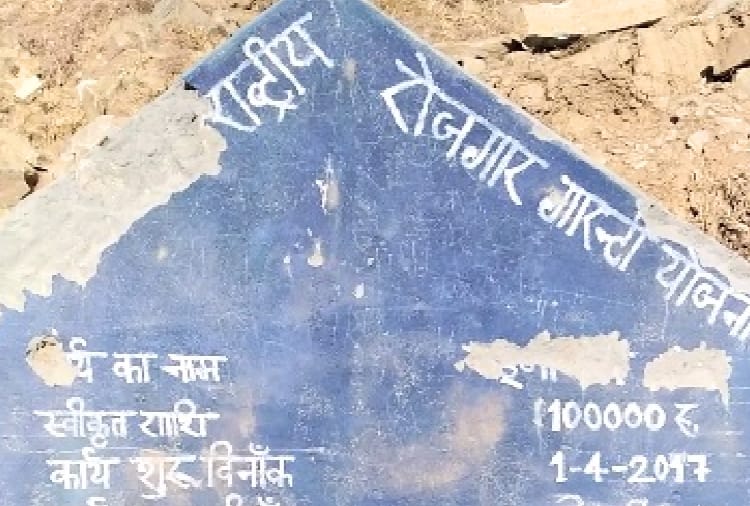 राष्ट्रीय रोजगार गारन्टी योजना
र्य का नाम
स्वीकृत राशि 100000 रु.
कार्य शुरू दिनाँक 1-4-2017